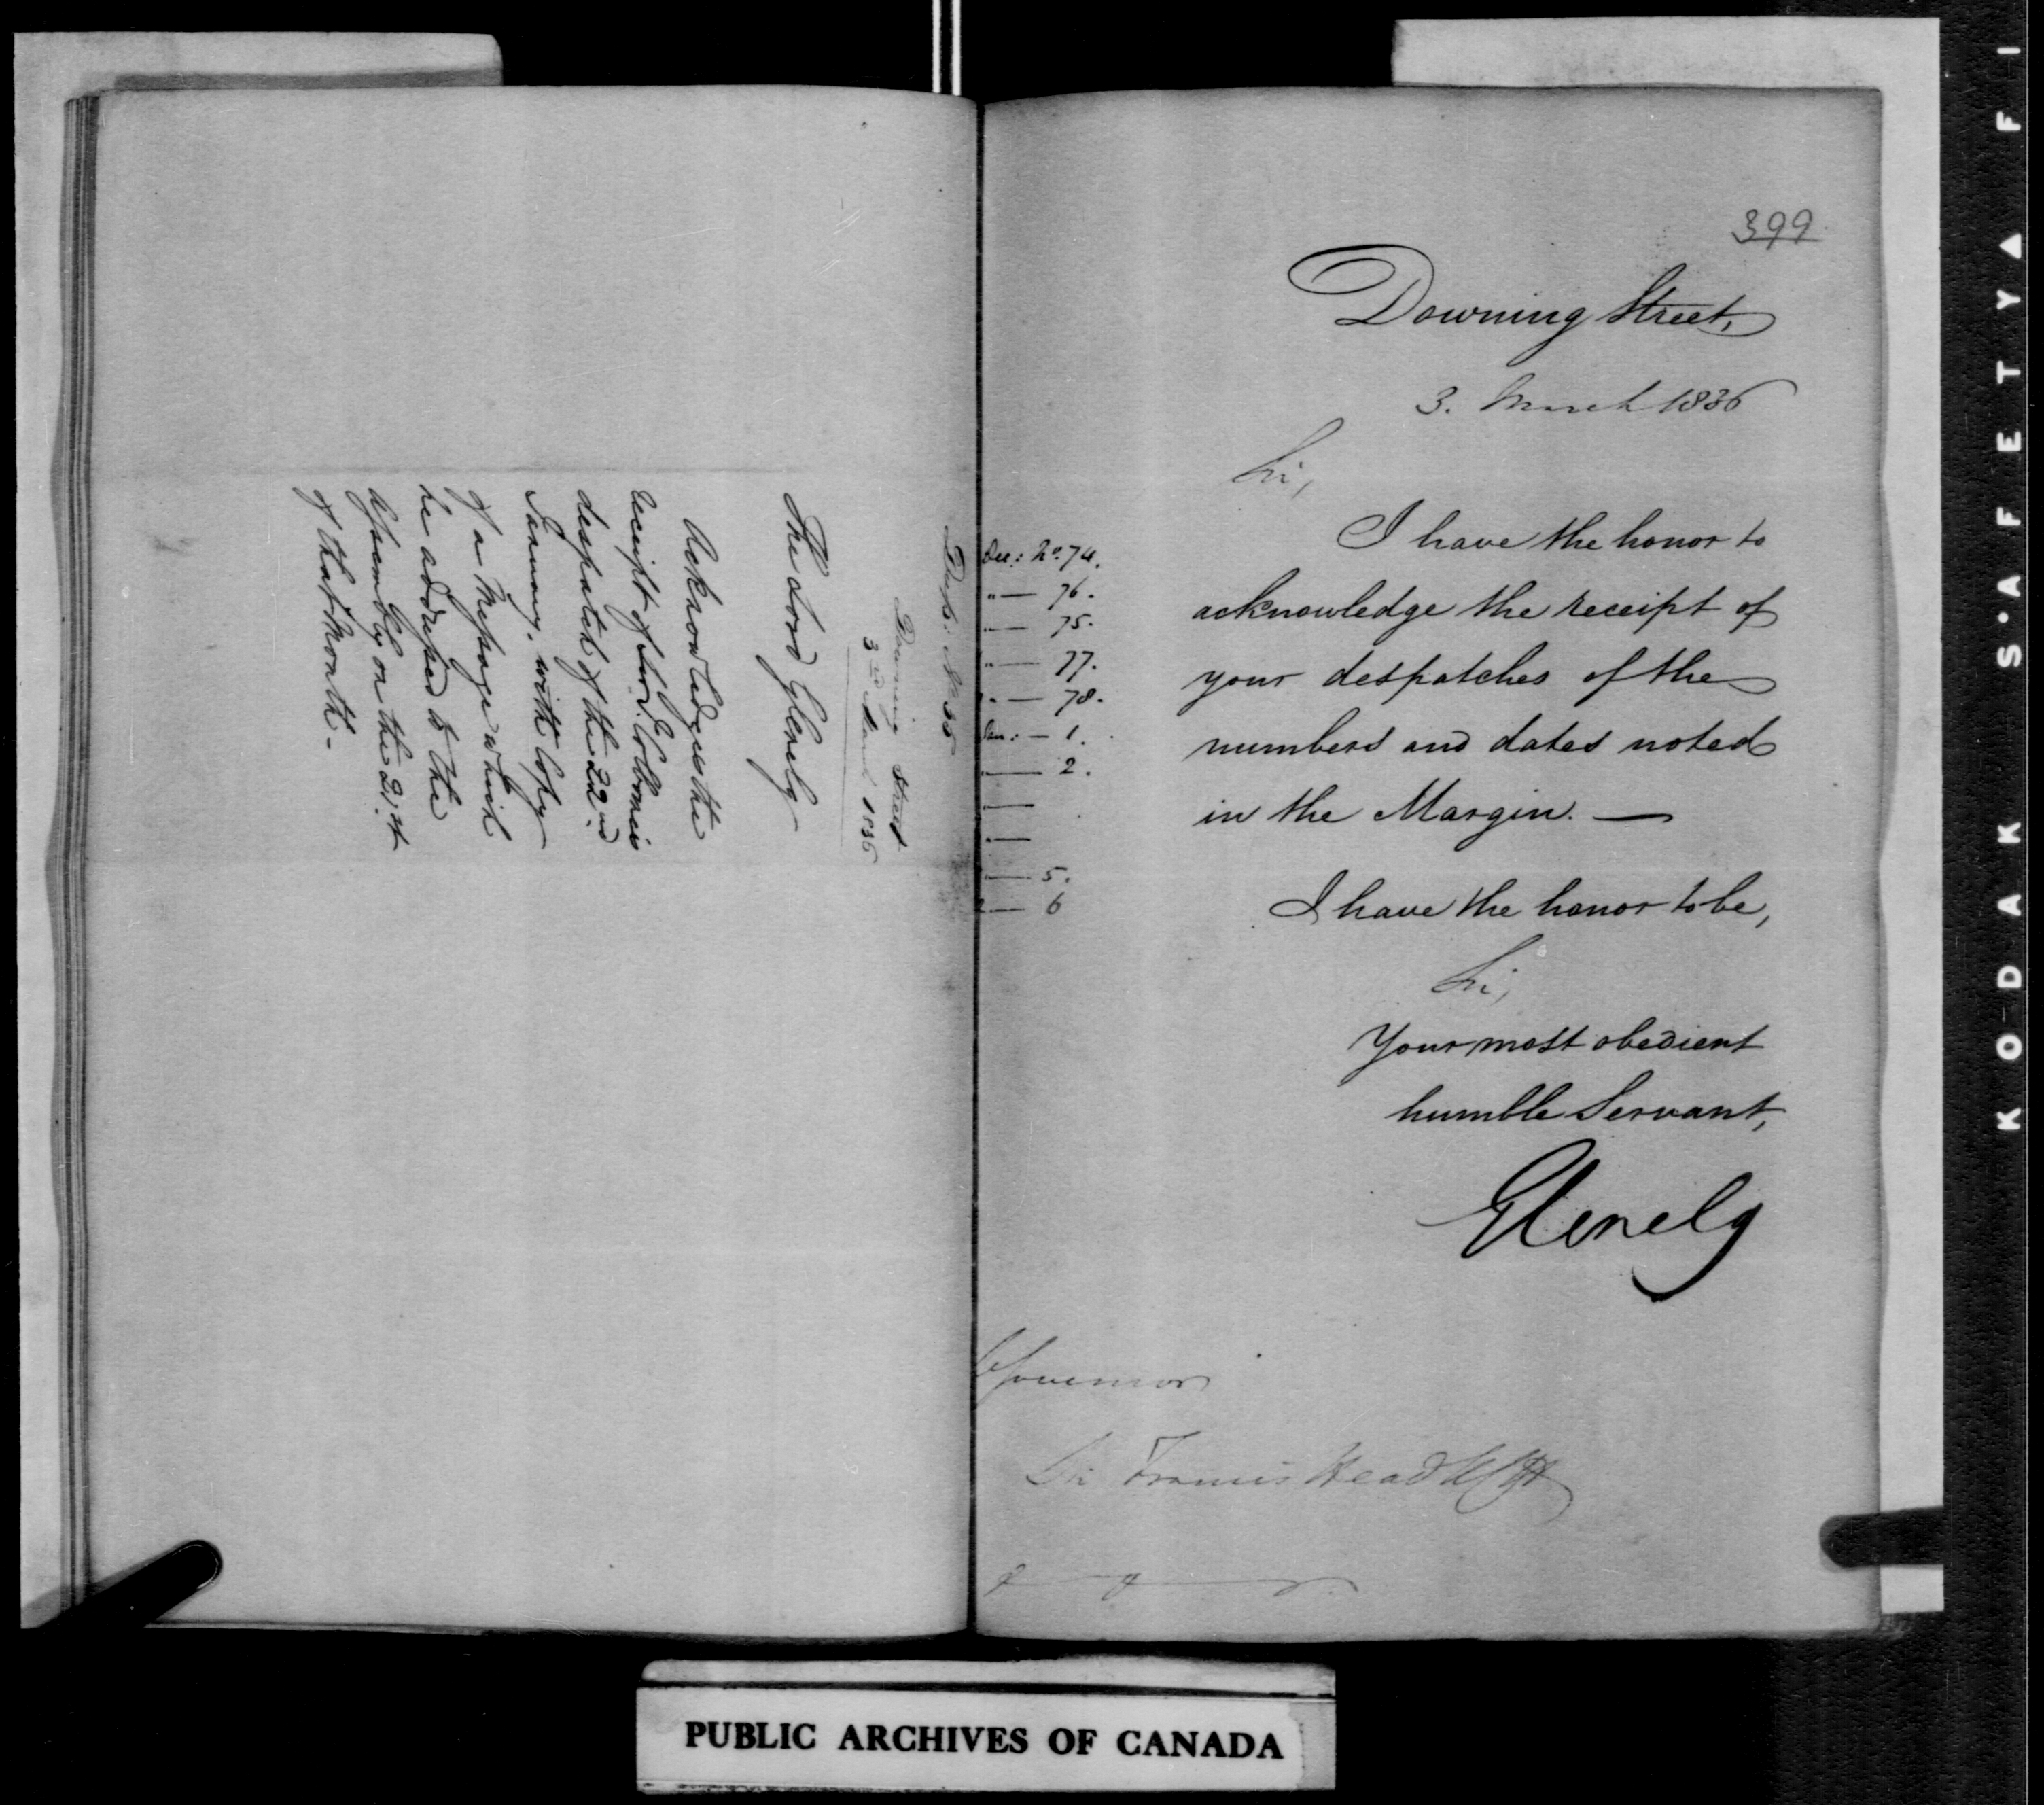 Desp: No 35
Downing Street
3rd March 1836
The Lord Glenelg
Acknowledges the
receipt of Sir J. Colborne's
despatch of the 22nd
January, with Copy
of a Message which
he addressed to the
Assembly on the 21st
of that Month.
399
Downing Street,
3. March 1836
Sir,
I have the honor to
acknowledge the receipt of
your despatches of the
numbers and dates noted
in the Margin. —
Dec: No. 74.
" — 76.
" — 75.
" — 77.
" — 78.
Jan: — 1.
— 2.
—
—
— 5.
— 6
I have the honor to be,
Sir,
Your most obedient
humble Servant,
Glenelg
Governor
Sir Francis Head KCH
PUBLIC ARCHIVES OF CANADA
KODAK S'AFETY▲FI